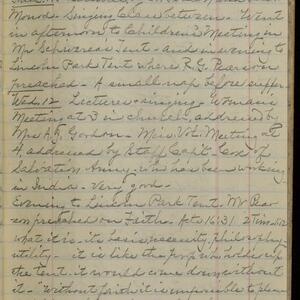 Monod. Singing Class between. Went
in afternoon to Children's Meeting in
Mr. Schiverea's Tent - and in evening to
Lincoln Park Tent where R. G. Pearson
preached. A small nap before supper.
Wed. 12 Lectures & singing. Woman's
Meeting at 3 in church, addressed by
Mrs A. J. Gordon. Miss. Vol. Meeting at
4, addressed by Staff Capt. Cox of
Salvation Army, who has been working
in India. Very good.
Evening to Lincoln Park Tent. Mr Pear-
son preached on Faith. Acts 16:31. 2 Tim.
what it is - its
utility - it is like the
the tent - it would come down without
it. "Without faith it is impossible to please